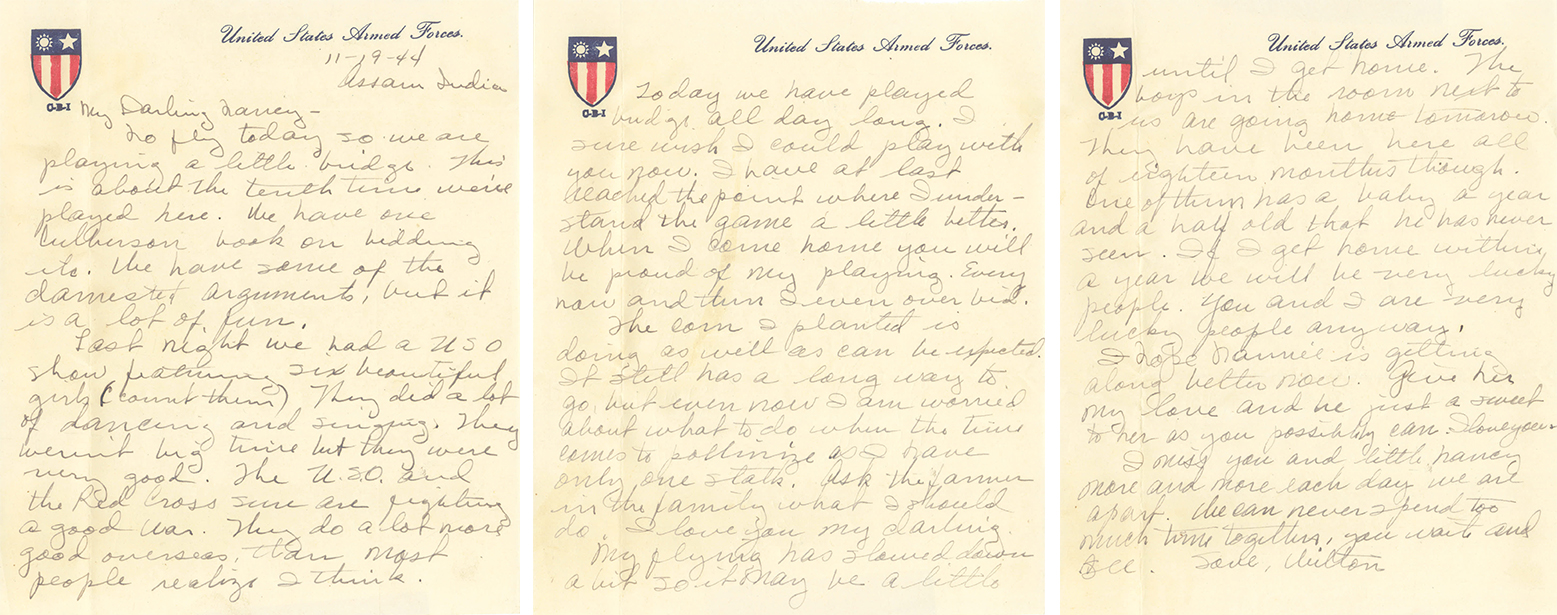 United States Armed Forces.
C-B-I
11-19-44
Assam India
My Darling Nancy-
No fly today so we are
playing a little bridge. This
is about the tenth time we've
played here. We have one
Culberson book on bidding
etc. We have some of the
darnested arguments, but it
is a lot of fun.
Last night we had a USO
show featuring six beautiful
girls (count them) They did a lot
of dancing and singing. They
weren't big time but they were
very good. The U.S.O. and
the Red Cross sure are fighting
a good war. They do a lot more
good overseas than most
people realize I think.
United States Armed Forces.
C-B-I
Today we have played
bridge all day long. I
sure wish I could play with
you now. I have at last
reached the point where I under-
stand the game a little better.
When I come home you will
be proud of my playing. Every
now and then I even over bid.
The corn I planted is
doing as well as can be expected.
It still has a long way to
go, but even now I am worried
about what to do when the time
comes to pollinize as I have
only one stalk. Ask the farmer
in the family what I should
do. I love you my darling.
My flying has slowed down
a bit so it may be a little
United States Armed Forces.
C-B-I
until I get home. The
boys in the room next to
us are going home tomorow.
They have been here all
of eighteen months though.
One of them has a baby a year
and a half old that he has never
seen. If I get home within
a year we will be very lucky
people. You and I are very
lucky people anyway.
I hope Nannie is getting
along better now. Give her
my love and be just a sweet
to her as you possibly can. I love you-
I miss you and little Nancy
more and more each day we are
apart. We can never spend too
much time together, you wait and
see. Love, Wilton